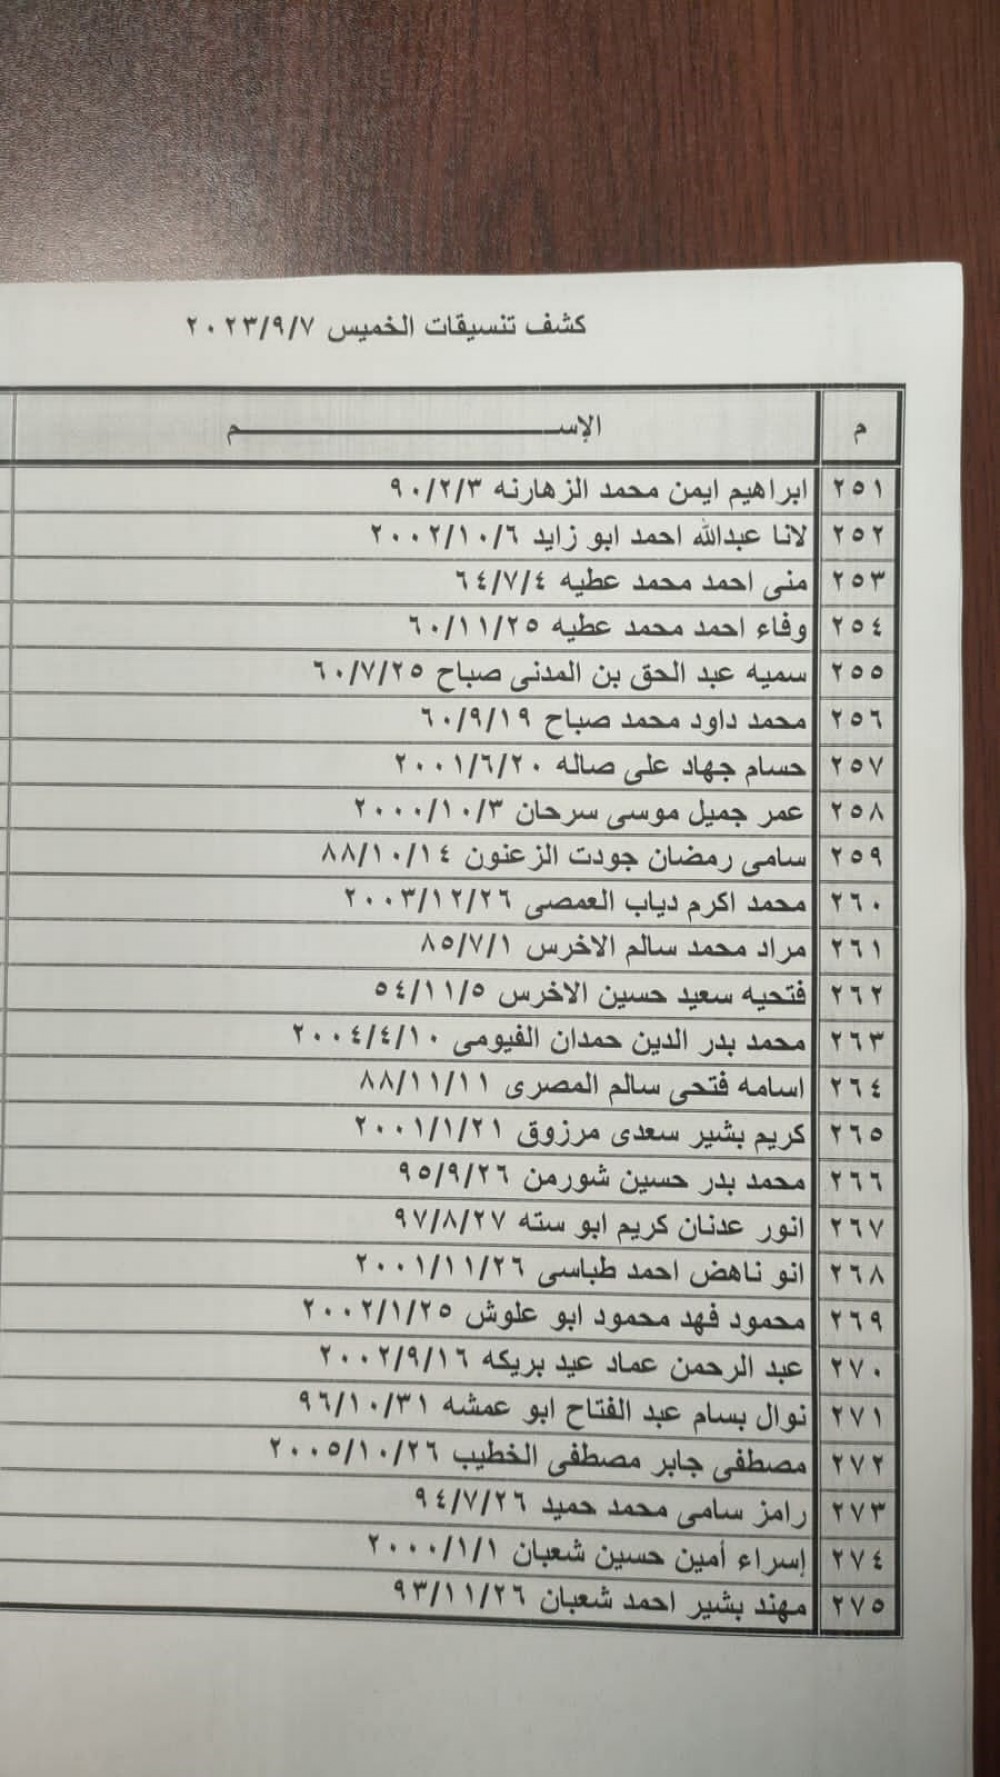 كشف تنسيقات الخميس ٢٠٢٣/٩/٧
م الإســـــــــم
٢٥١ ابراهيم ايمن محمد الزهارنه ٩٠/٢/٣
٢٥٢ لانا عبدالله احمد ابو زايد ٢٠٠٢/١٠/٦
٢٥٣ منى احمد محمد عطيه ٦٤/٧/٤
٢٥٤ وفاء احمد محمد عطيه ٦٠/١١/٢٥
٢٥٥ سميه عبد الحق بن المدنى صباح ٦٠/٧/٢٥
٢٥٦ محمد داود محمد صباح ٦٠/٩/١٩
٢٥٧ حسام جهاد على صاله ٢٠٠١/٦/٢٠
٢٥٨ عمر جميل موسى سرحان ٢٠٠٠/١٠/٣
٢٥٩ سامى رمضان جودت الزعنون ٨٨/١٠/١٤
٢٦٠ محمد اكرم دياب العمصى ٢٠٠٣/١٢/٢٦
٢٦١ مراد محمد سالم الاخرس ٨٥/٧/١
٢٦٢ فتحيه سعيد حسين الاخرس ٥٤/١١/٥
٢٦٣ محمد بدر الدين حمدان الفيومى ٢٠٠٤/٤/١٠
٢٦٤ اسامه فتحى سالم المصرى ٨٨/١١/١١
٢٦٥ كريم بشير سعدى مرزوق ٢٠٠١/١/٢١
٢٦٦ محمد بدر حسين شورمن ٩٥/٩/٢٦
٢٦٧ انور عدنان كريم ابو سته ٩٧/٨/٢٧
٢٦٨ انو ناهض احمد طباسى ٢٠٠١/١١/٢٦
٢٦٩ محمود فهد محمود ابو علوش ٢٠٠٢/١/٢٥
٢٧٠ عبد الرحمن عماد عيد بريكه ٢٠٠٢/٩/١٦
٢٧١ نوال بسام عبد الفتاح ابو عمشه ٩٦/١٠/٣١
٢٧٢ مصطفى جابر مصطفى الخطيب ٢٠٠٥/١٠/٢٦
٢٧٣ رامز سامى محمد حميد ٩٤/٧/٢٦
٢٧٤ إسراء أمين حسين شعبان ٢٠٠٠/١/١
٢٧٥ مهند بشير احمد شعبان ٩٣/١١/٢٦